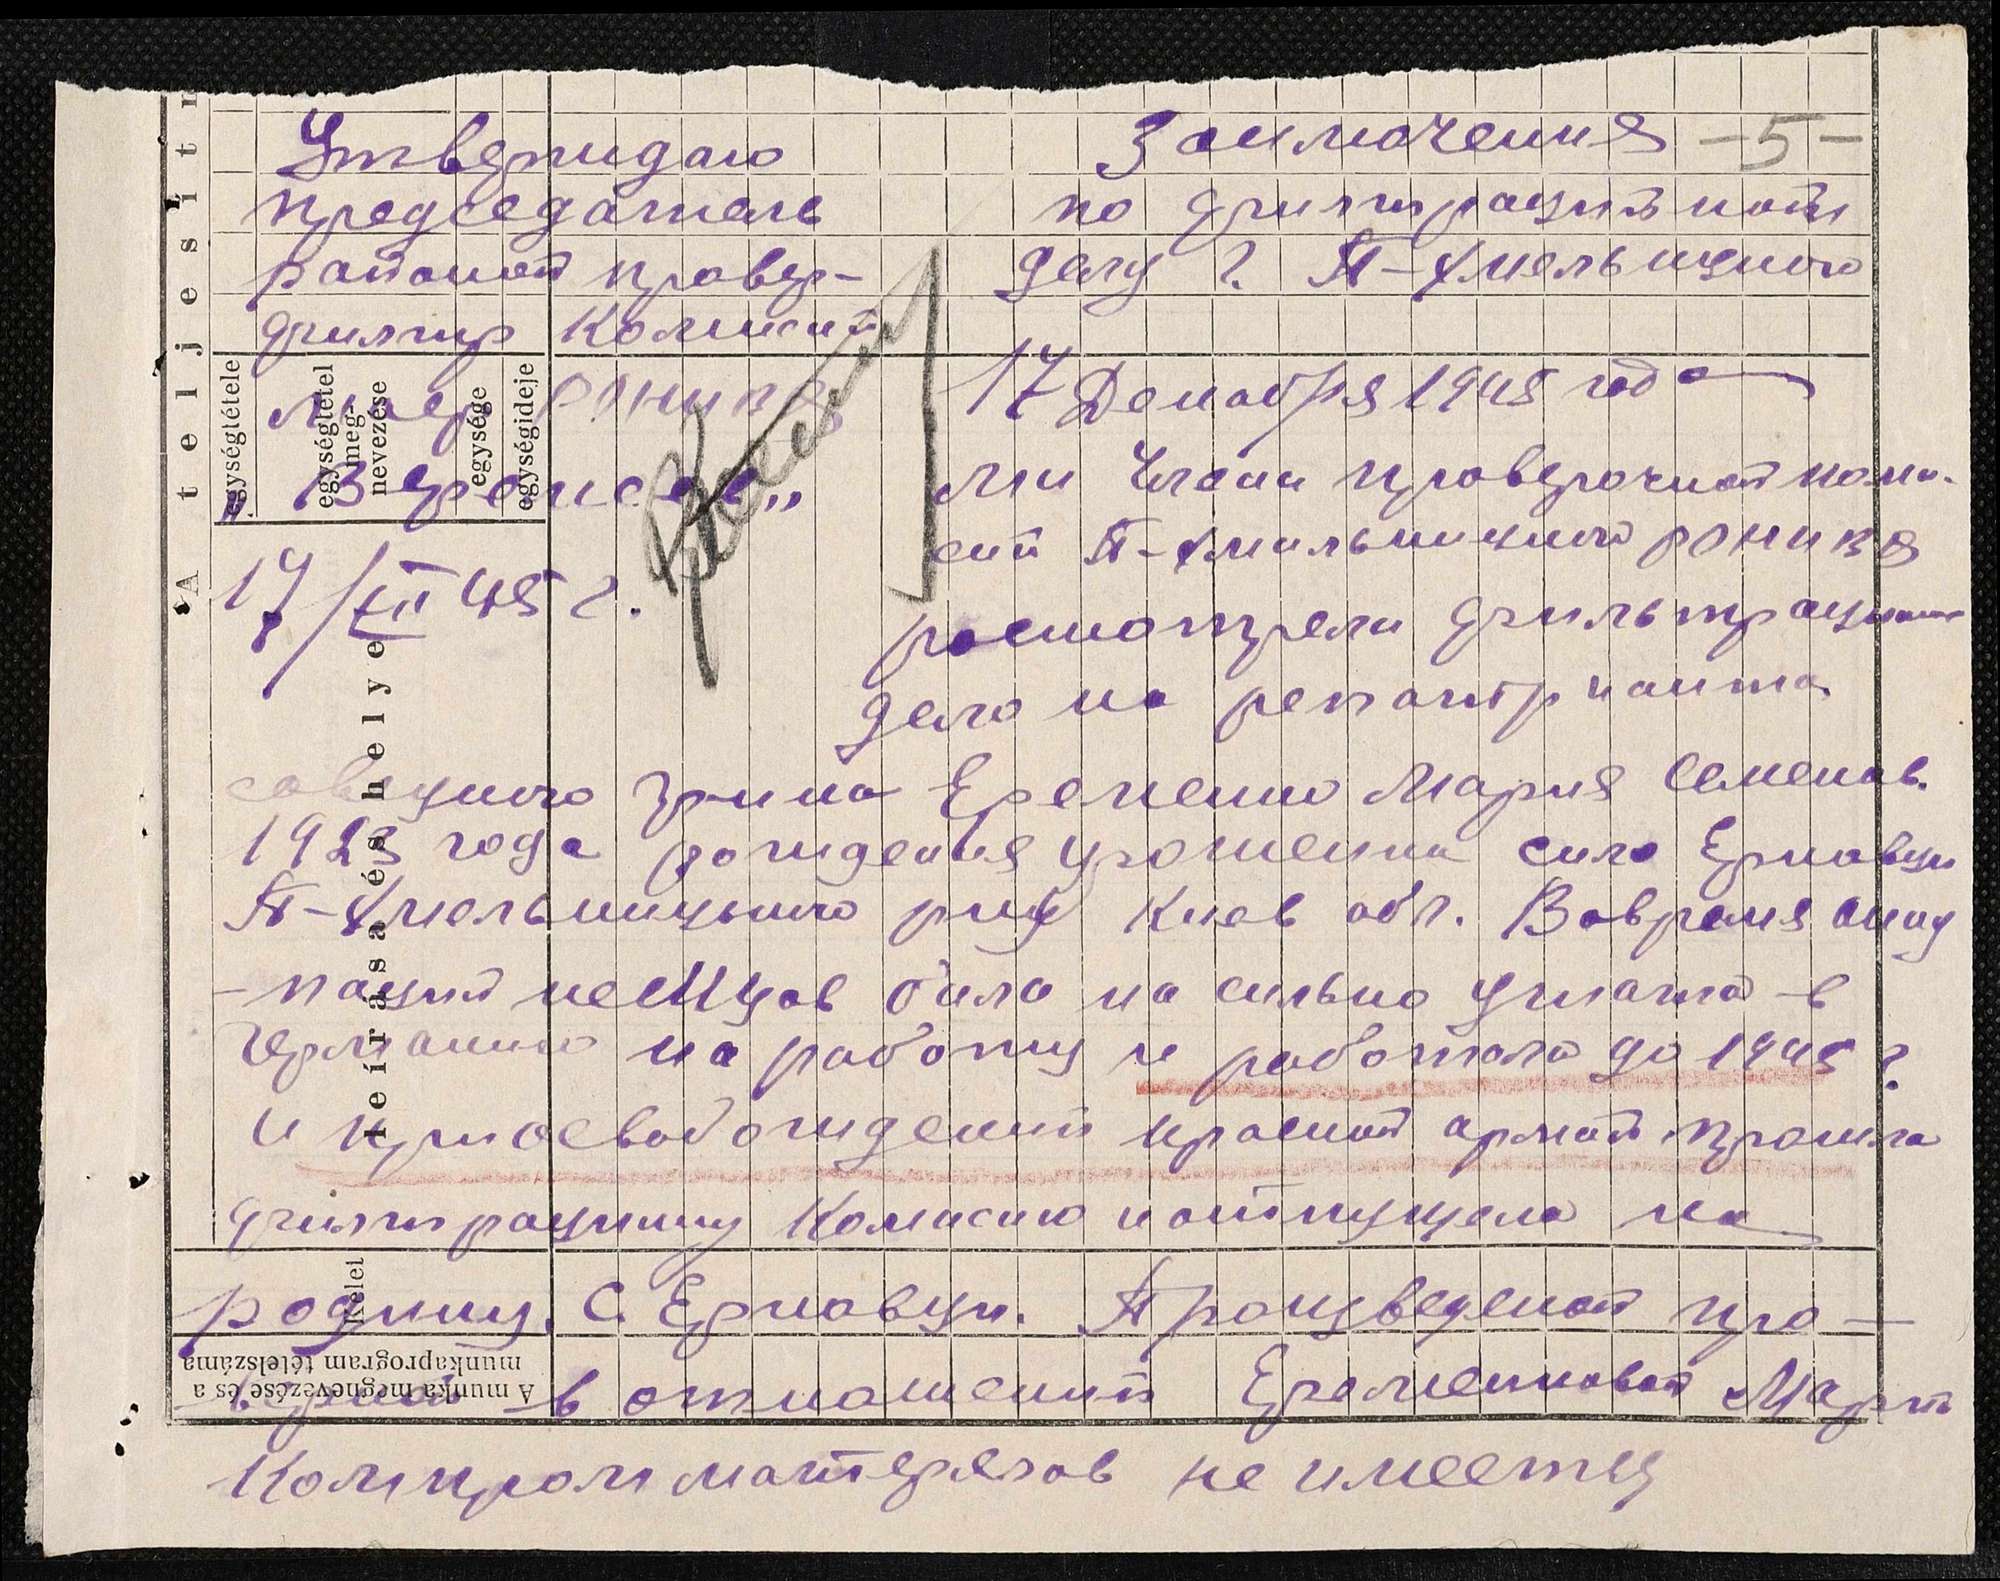 Утверждаю
председатель
районой провер-
фильтр Комисий
РОНКВД
17/XII 45 г.
Заключения -5-
по фильтрацийной
делу г. П-Хмельницкого
17 Декабря 1945 года
Ми Члени проверочной коми-
сии П-Хмельницкого РОНКВД
росмотрели фильтрационе
дело на репатрианта
совецкого гр-нка Еременко Мария Семенов.
1923 года рождения урошенка село Ерковци
П-Хмельницького р-на Киев обл. Вовремя окку
-паций немцов била на сильно угната в
Германию на работу и работала до 1945 г
и при освобождений красной армий прошла
фильтрационну Комисию и отпущена на
родину. С. Ерковци. Произведеной про-
веркой в отношений Еременковой Марй
Компромматерялов не имеетця
Ateljesít
egységtétele
egységtétel
meg-
nevezése
egysége
egységideje
leírása és helye
kelet
A munka megnevezése és a
munkaprogram tételszáma